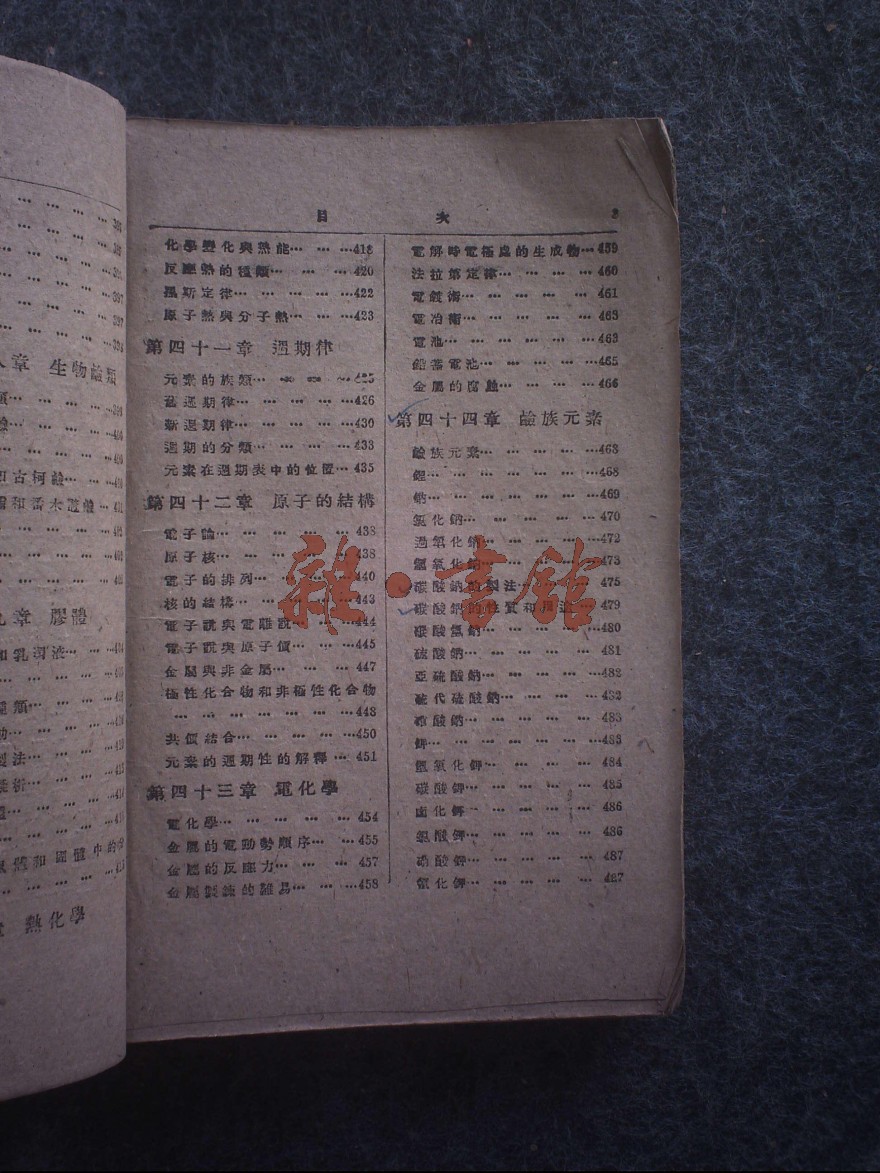 396
397
397
394
章 生物鹼類
和古柯鹼
章 膠體
和乳濁液
製法
熱化學
目 次 3
化學變化與熱能………418
反應熱的種類………420
黑斯定律………422
原子熱與分子熱………423
第四十一章 週期律
元素的族類………425
舊週期律………426
新週期律………430
週期的分類………433
元素在週期表中的位置…435
第四十二章 原子的結構
電子論………438
原子核………438
電子的排列………440
核的結構………443
電子說與電離說………444
電子說與原子價………445
金屬與非金屬………447
極性化合物和非極性化合物
………448
共價結合………450
元素的週期性的解釋…451
第四十三章 電化學
電化學………454
金屬的電動勢順序………455
金屬的反應力………457
金屬製鍊的難易………458
電解時電極處的生成物…459
法拉第定律………460
電鍍術………461
電冶術………463
電池………463
鉛蓄電池………465
金屬的腐蝕………466
第四十四章 鹼族元素
鹼族元素………468
鋰………468
鈉………469
氯化鈉………470
過氧化鈉………472
氫氧化鈉………473
碳酸鈉的製法………475
碳酸鈉的性質和用途…479
碳酸氫鈉………480
硫酸鈉………481
亞硫酸鈉………482
硫代硫酸鈉………482
硝酸鈉………483
鉀………483
氫氧化鉀………484
碳酸鉀………485
鹵化鉀………486
氯酸鉀………486
硝酸鉀………487
氰化鉀………487
雜·書館